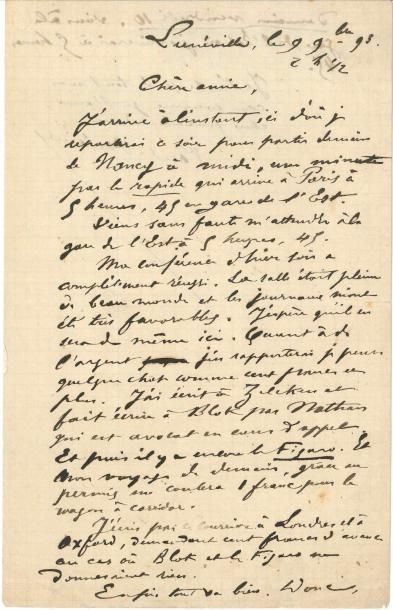 Lunéville, le 9 9bre 93.
2 h 1/2
Chère amie,
J'arrive à l'instant ici d'où j
repartirai ce soir pour partir demain
de Nancy à midi, une minute
par le rapide qui arrive à Paris à
5 heures, 45 en gare de l'Est.
Viens sans faute m'attendre à la
gare de l'Est à 5 heures, 45.
Ma conférence d'hier soir a
complètement réussi. La salle était pleine
de beau monde et les journaux m'ont
été très favorables. J'espère qu'il en
sera de même ici. Quant à de
l'argent j'en rapporterai je pense
quelque chose comme cent francs en
plus. J'ai écrit à Zilcken et
fait écrire à Blok par Nathan
qui est avocat en cour d'appel
Et puis il y a encore le Figaro. Et
mon voyage de demain, grâce au
permis me coûtera 1 franc pour le
wagon à corridor.
J'écris par ce courrier à Londres et à
Oxford, demandant cent francs d'avance
au cas où Blok et le Figaro ne
donneraient rien.
Enfin tout va bien. Donc,